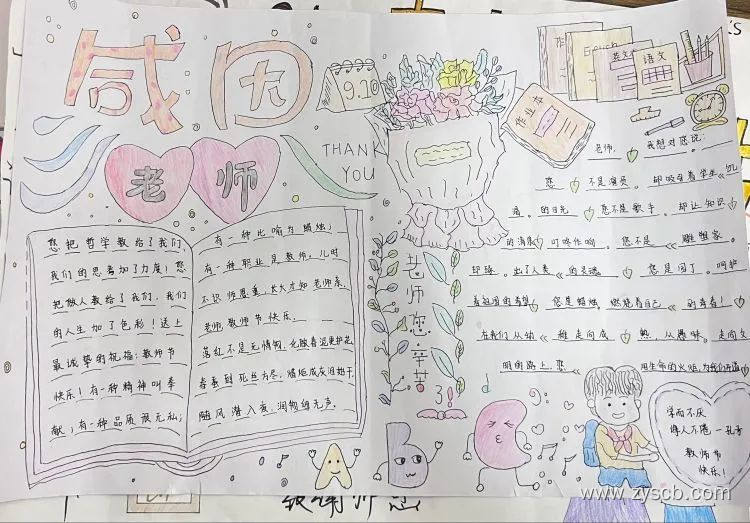 感恩
9.10
老师
THANK
YOU
您把哲学教给了我们,
我们的思考加了力度!您
把做人教给了我们,我们
的人生加了色彩!送上
最诚挚的祝福:教师节
快乐!有一种精神叫奉
献;有一种品质很无私;
有一种比喻为蜡烛;
有一种职业是教师,儿时
不识师恩重,长大才知老师亲,
老师,教师节快乐.
落红不是无情物,化做春泥更护花
春蚕到死丝方尽,蜡炬成灰泪始干.
随风潜入夜,润物细无声.
老师您辛苦了!
作业本
英文
语文
老师, 我想对您说:
您 不是演员, 却吸引着学生
的目光 您不是歌手, 却让知识
的清泉 叮咚作响, 您不是 雕塑家,
却 出了人类 的灵魂 您是园丁, 呵护
着祖国的希望 您是蜡烛, 燃烧着自己 的青春!
在我们从幼 稚走向成 熟,从愚昧 走向文
明的路上,您 用生命的火炬,为我们开道
学而不厌
诲人不倦 一孔子
教师节
快乐!
www.zyscb.com